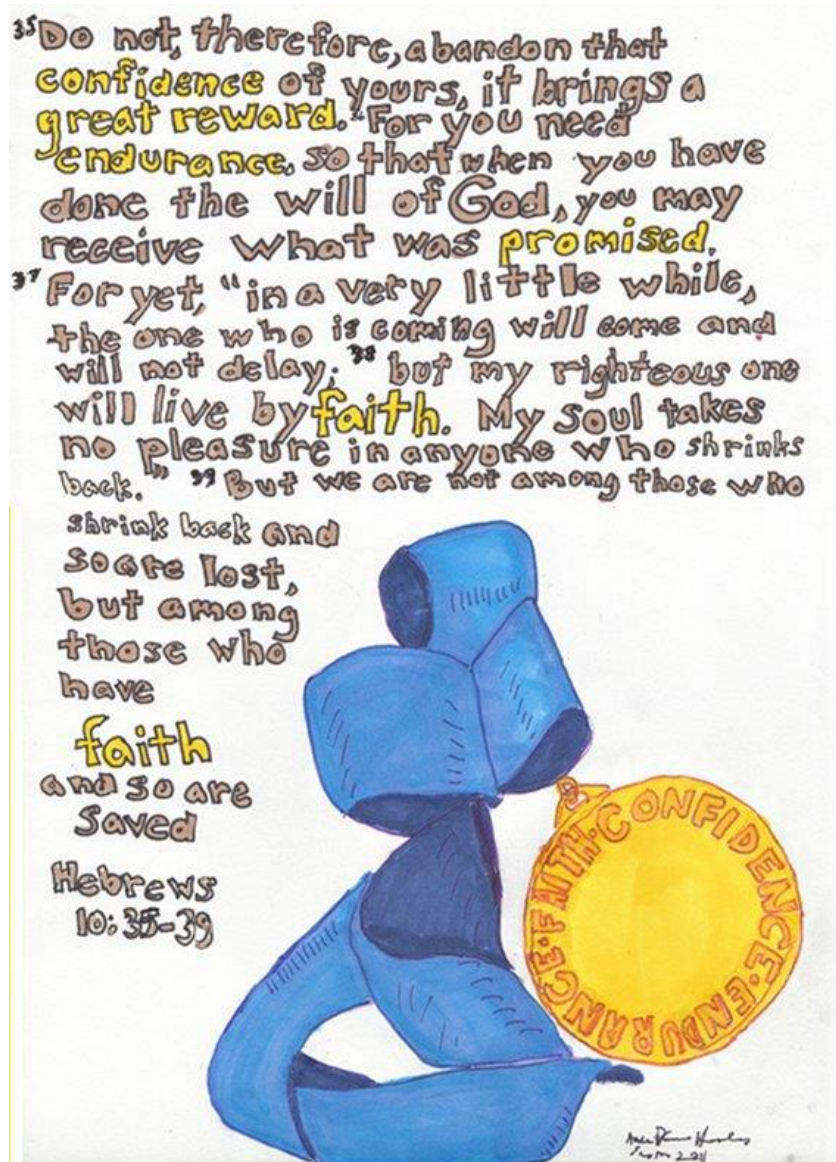 35 Do not, therefore, abandon that
confidence of yours, it brings a
great reward. 36 For you need
endurance, so that when you have
done the will of God, you may
receive what was promised.
37 For yet, "in a very little while,
the one who is coming will come and
will not delay; 38 but my righteous one
will live by faith. My soul takes
no pleasure in anyone who shrinks
back." 39 But we are not among those who
shrink back and
so are lost,
but among
those who
have
faith
and so are
saved
Hebrews
10:35-39
FAITH·CONFIDENCE·ENDURANCE·